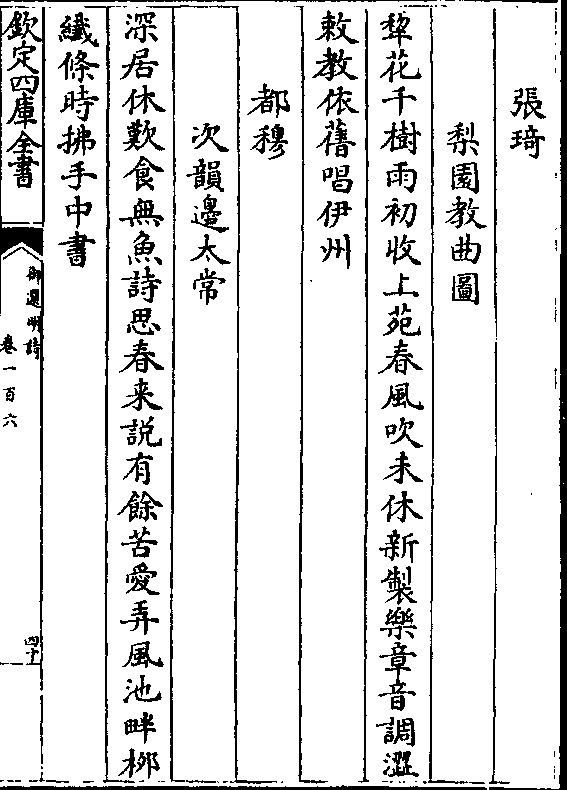 張琦
梨園教曲圖
犂花千樹雨初收上苑春風吹未休新製樂章音調澀
敕教依舊唱伊州
都穆
次韻邊太常
深居休歎食無魚詩思春来説有餘苦愛弄風池畔栁
纖條時拂手中書
欽定四庫全書
御選明詩
卷一百六
四十